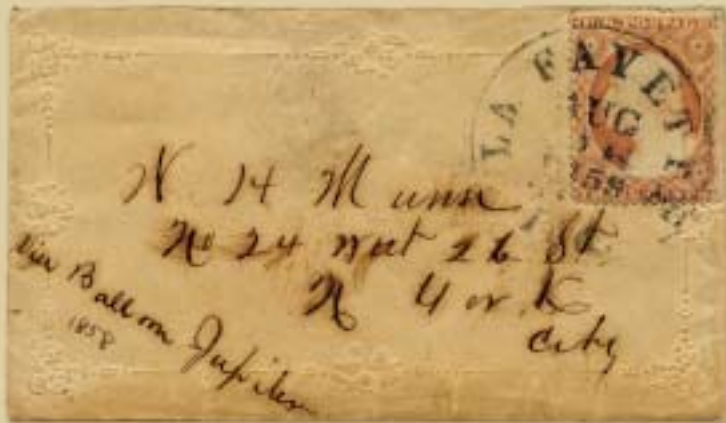 LA FAYET
UG
58
N H Munn
No 24 West 26 St
N York
City
Via Balloon Jupiter
1858